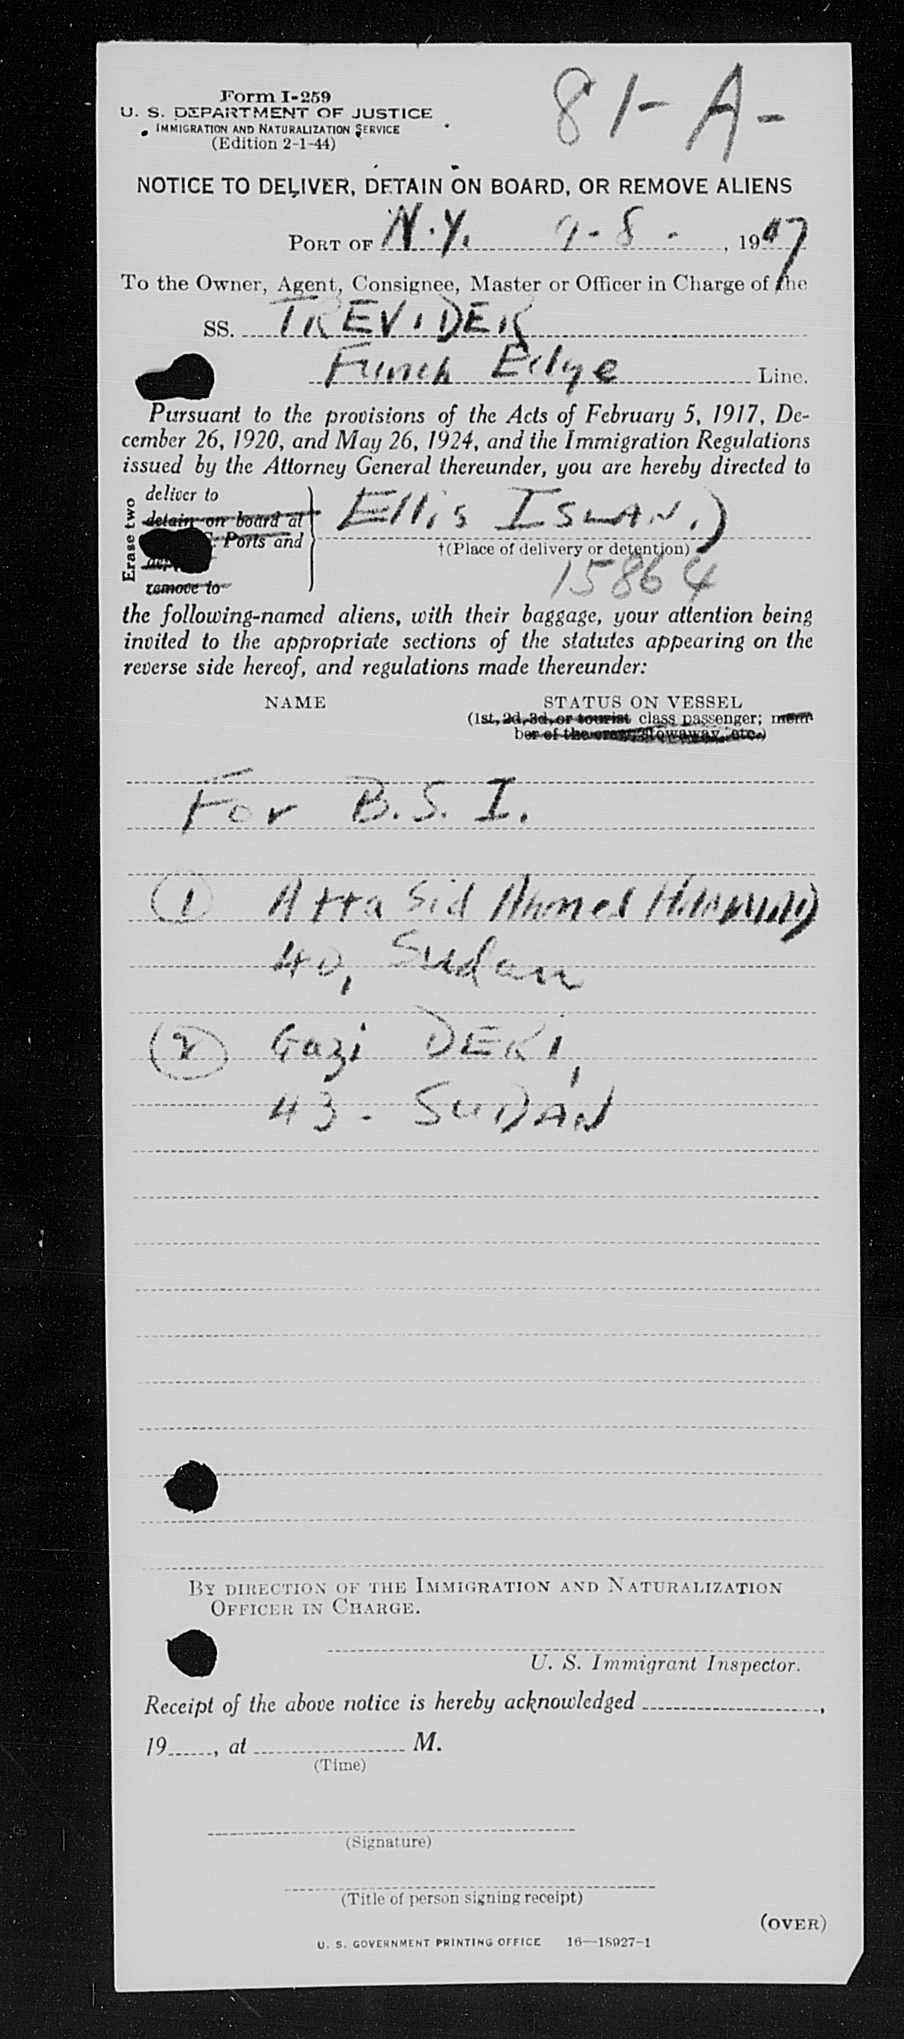 81-A-
Form I-259
U. S. DEPARTMENT OF JUSTICE
IMMIGRATION AND NATURALIZATION SERVICE
(Edition 2-1-44)
NOTICE TO DELIVER, DETAIN ON BOARD, OR REMOVE ALIENS
PORT OF N.Y. 9-8-, 1947
To the Owner, Agent, Consignee, Master or Officer in Charge of the
SS. TREVIDER
Funch Edye Line.
Pursuant to the provisions of the Acts of February 5, 1917, De-
cember 26, 1920, and May 26, 1924, and the Immigration Regulations
issued by the Attorney General thereunder, you are hereby directed to
Erase two
deliver to
detain on board at
Ports and
remove to
Ellis Island
†(Place of delivery or detention)
15864
the following-named aliens, with their baggage, your attention being
invited to the appropriate sections of the statutes appearing on the
reverse side hereof, and regulations made thereunder:
NAME STATUS ON VESSEL
(1st, 2d, 3d, or tourist class passenger; mem-
ber of the crew, stowaway, etc.)
For B.S.I.
1 Atta Sid Ahmed
40, Sudan
2 Gazi DERI,
43 - SUDAN
BY DIRECTION OF THE IMMIGRATION AND NATURALIZATION
OFFICER IN CHARGE.
U. S. Immigrant Inspector.
Receipt of the above notice is hereby acknowledged ,
19 , at M.
(Time)
(Signature)
(Title of person signing receipt)
(OVER)
U. S. GOVERNMENT PRINTING OFFICE 16—18927-1